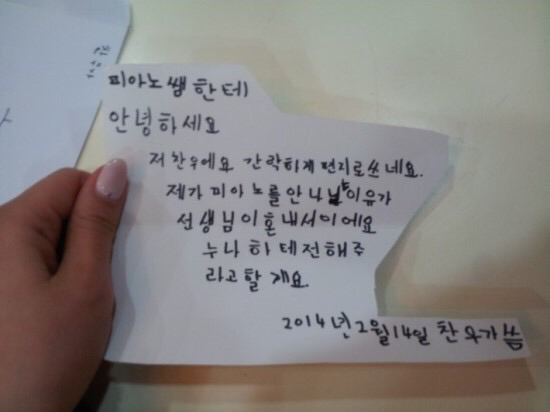 피아노쌤한테
안녕하세요
저 찬우에요 간략하게 편지로쓰네요.
제가 피아노를 안나난이유가
선생님이혼내서이에요
누나하테전해주
라고할게요.
2014년2월14일 찬우가씀